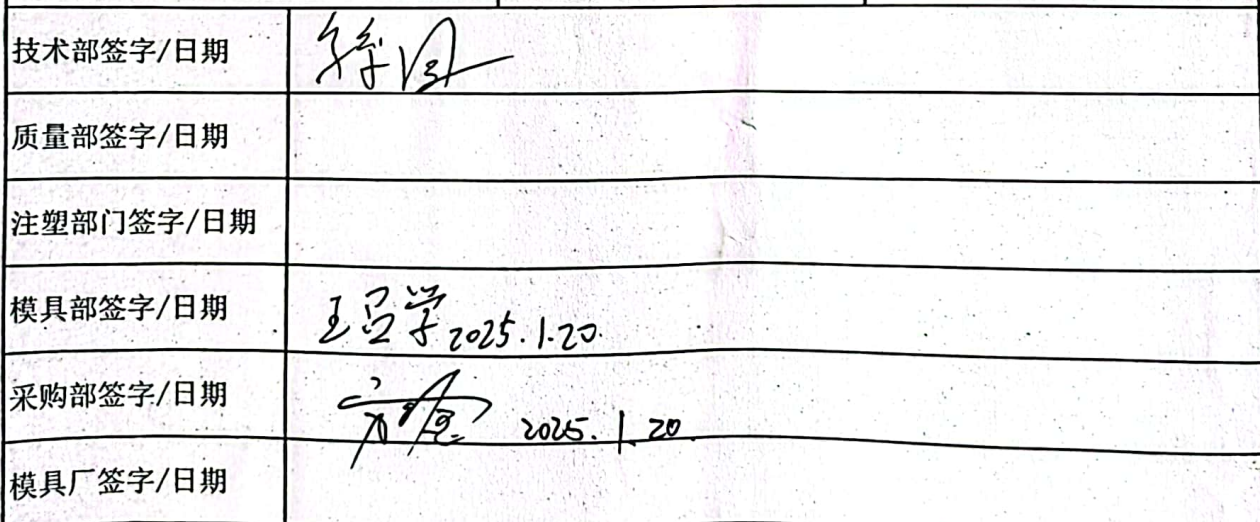 技术部签字/日期
质量部签字/日期
注塑部门签字/日期
模具部签字/日期 王 学 2025.1.20.
采购部签字/日期 2025.1.20.
模具厂签字/日期